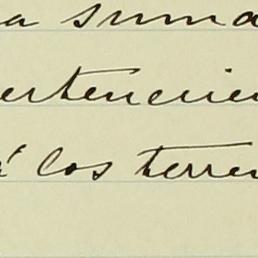 a suma
ertenecien
á los terren